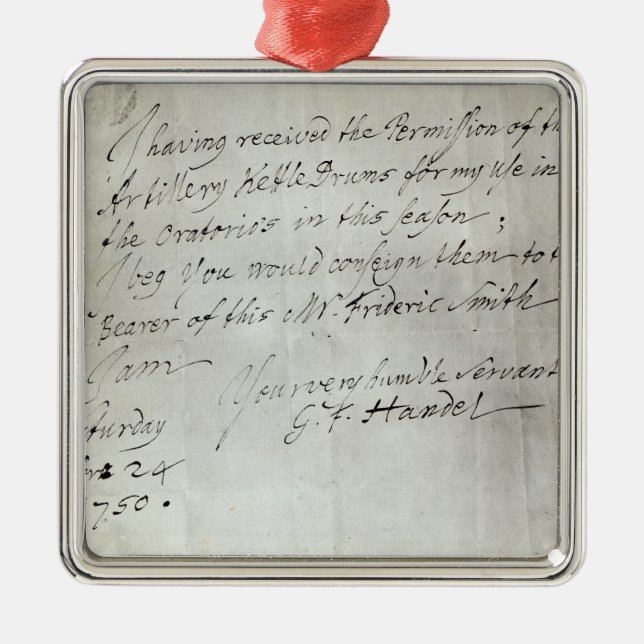 I having received the Permission of th
Artillery Kettle Drums for my use in
the Oratorio's in this season;
I beg you would conseign them to t
Bearer of this Mr. Frideric Smith
I am
Your very humble servant
G. F. Handel
turday
24
750.